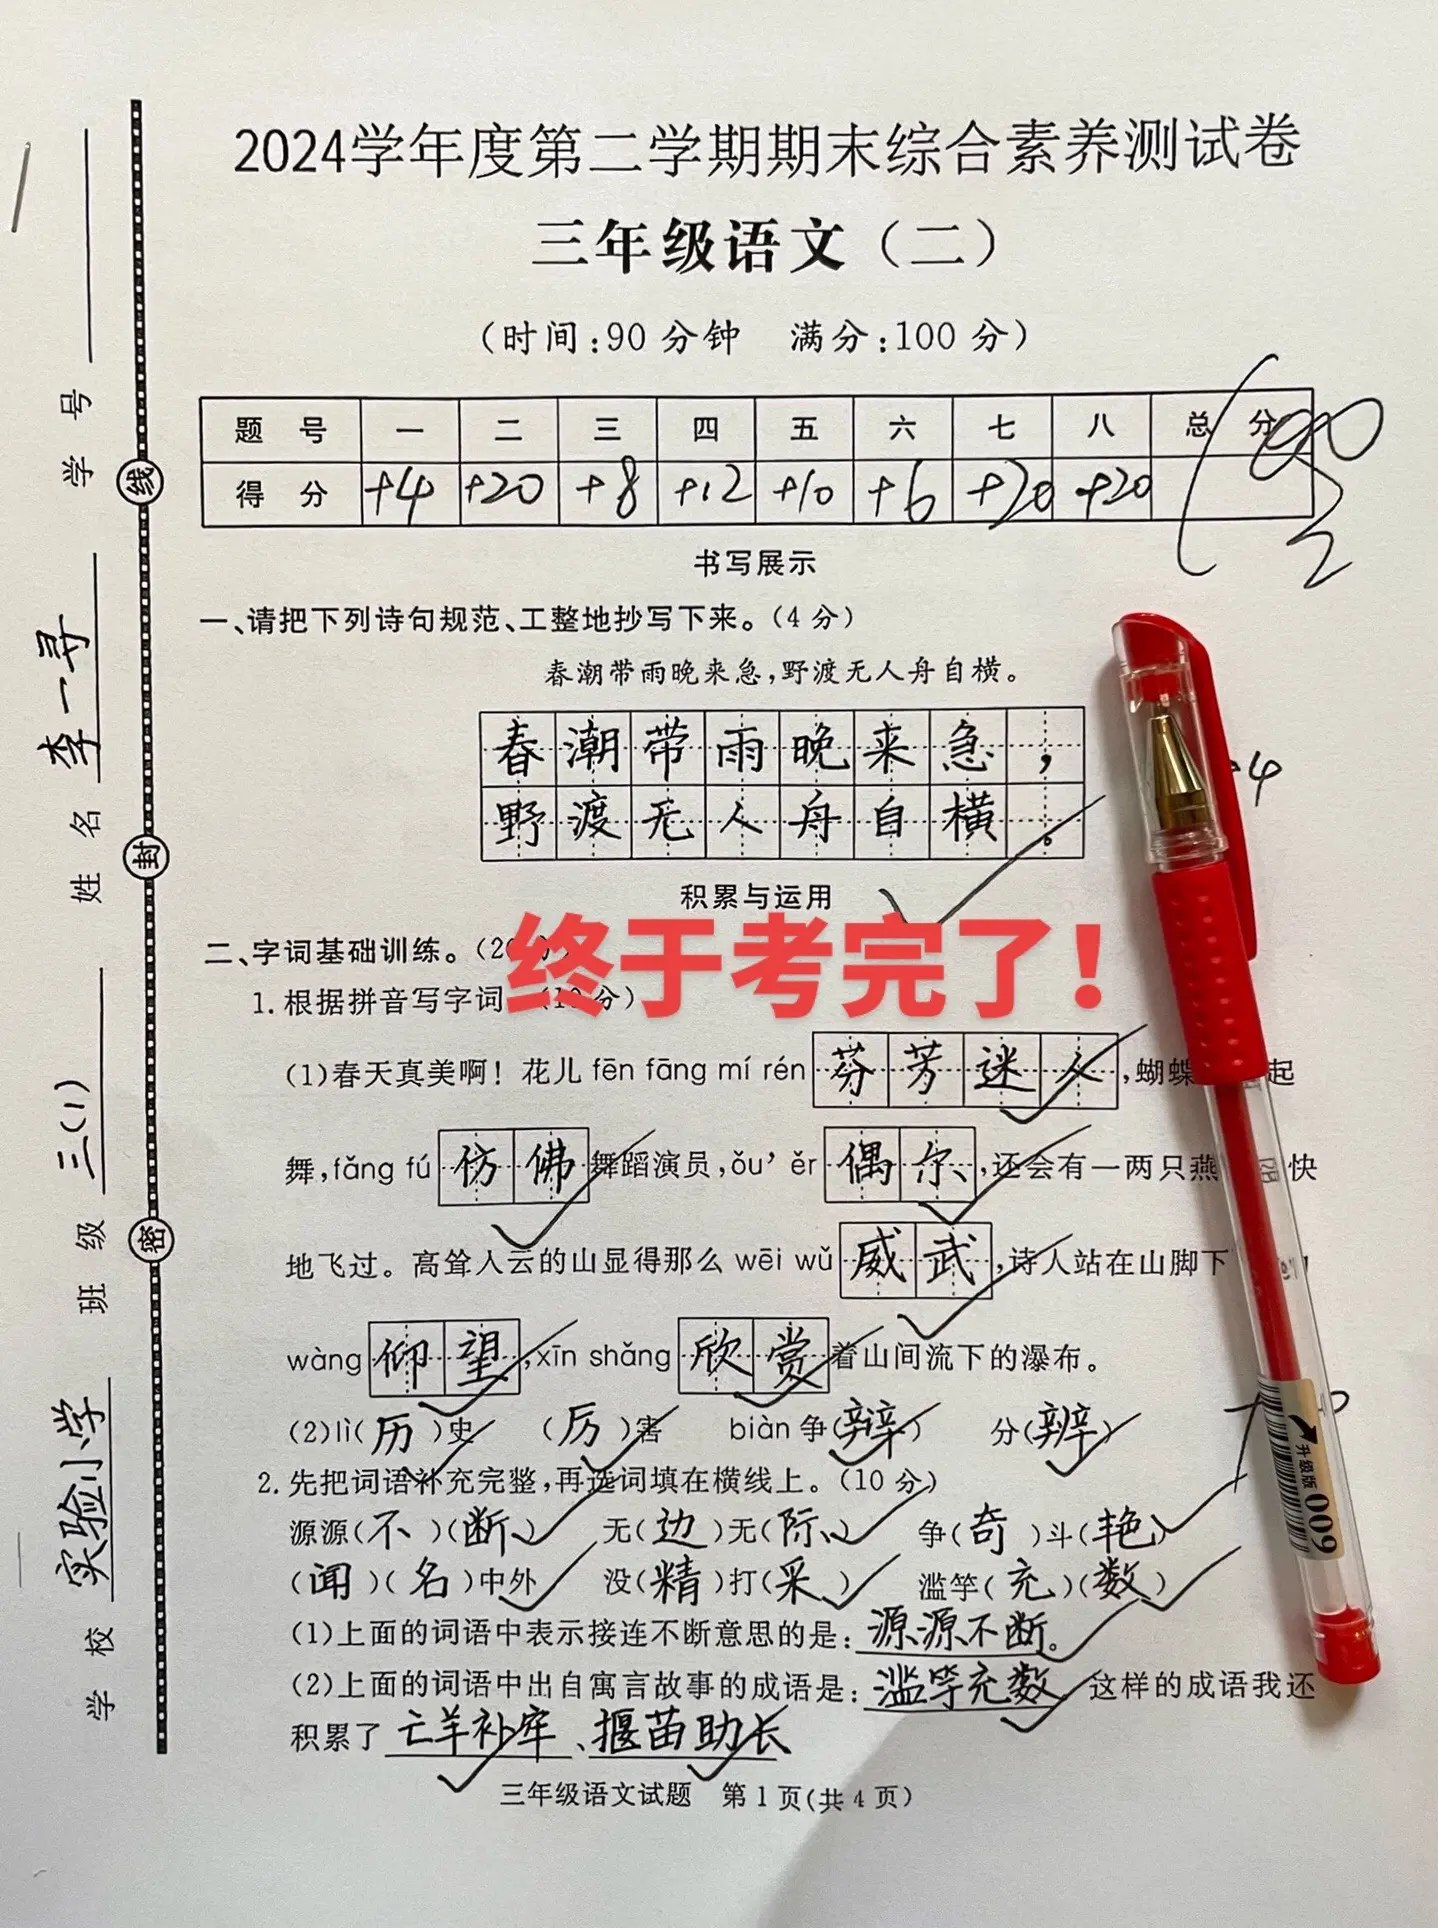 2024学年度第二学期期末综合素养测试卷
三年级语文（二）
（时间:90分钟 满分:100分）
题号 一 二 三 四 五 六 七 八 总分
得分 +4 +20 +8 +12 +10 +6 +20 +20
书写展示
一、请把下列诗句规范、工整地抄写下来。(4分)
春潮带雨晚来急,野渡无人舟自横。
春潮带雨晚来急，
野渡无人舟自横。
积累与运用
终于考完了!
二、字词基础训练。
1.根据拼音写字词
(1)春天真美啊! 花儿 fēn fāng mí rén 芬芳迷人,蝴蝶 起
舞,fǎng fú 仿佛 舞蹈演员,ǒu' ěr 偶尔,还会有一两只燕 快
地飞过。高耸入云的山显得那么 wēi wǔ 威武,诗人站在山脚下
wàng 仰望,xīn shǎng 欣赏着山间流下的瀑布。
(2)lì(历)史 (厉)害 biàn 争(辩) 分(辨)
2.先把词语补充完整,再选词填在横线上。(10分)
源源(不)(断) 无(边)无(际) 争(奇)斗(艳)
(闻)(名)中外 没(精)打(采) 滥竽(充)(数)
(1)上面的词语中表示接连不断意思的是:源源不断。
(2)上面的词语中出自寓言故事的成语是:滥竽充数 这样的成语我还
积累了 亡羊补牢、揠苗助长
三年级语文试题 第1页(共4页)
学校 实验小学 班级 三(1) 姓名 李一寻 学号
密 封 线
升级版 009